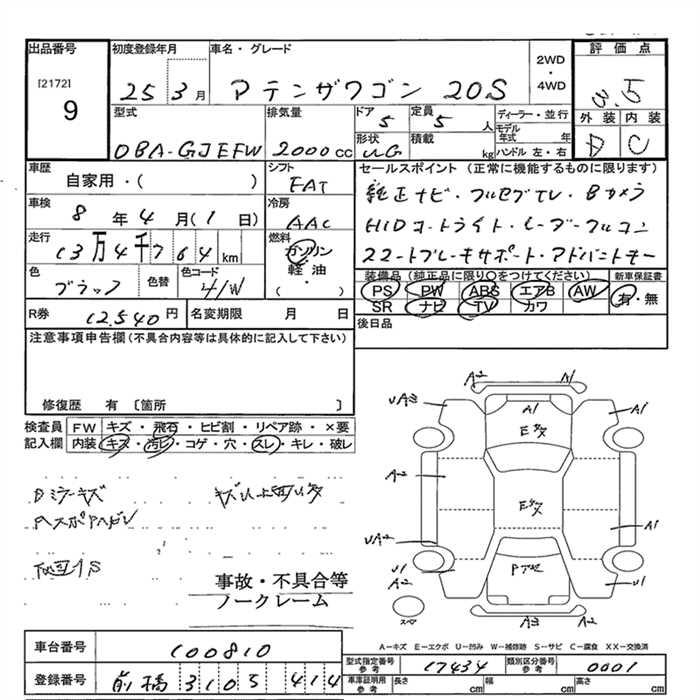 出品番号 初度登録年月 車名・グレード 2WD・4WD 評価点
[2172] 9 25 3月 アテンザワゴン 20S 3.5
型式 排気量 ドア 5 定員 5人 ディーラー・並行 外装 内装
DBA-GJEFW 2000cc 形状 WG 積載 kg モデル年式 年 ハンドル 左・右 D C
車歴 自家用・( ) シフト FAT セールスポイント (正常に機能するものに限ります)
純正ナビ・フルセグTV・Bカメラ
車検 8年4月(1日) 冷房 AAC HIDコートライト・レーダークルコン
走行 13万4千764km 燃料 ガソリン 軽・油 ( ) スマートブレーキサポート・アドバンストキー
色 ブラック 色替 色コード 41W 装備品 (純正品に限り○をつけてください) 新車保証書
PS PW ABS エアB AW 有・無
SR ナビ TV カワ
R券 12,540円 名変期限 月 日 後日品
注意事項申告欄 (不具合内容等は具体的に記入して下さい)
修復歴 有 〔箇所 〕
検査員記入欄 FW キズ・飛石・ヒビ割・リペア跡・×要
内装 キズ・汚れ・コゲ・穴・スレ・キレ・破レ
Dミラーキズ
事故・不具合等
ノークレーム
A2 A1
UA3 A1 A1
Eキズ
A2 Eキズ A1
UA2
U1 A2 U1
A3 A2
スペア
A-キズ E-エクボ U-凹み W-補修跡 S-サビ C-腐食 XX-交換済
車台番号 100810 型式指定番号 参考 17434 類別区分番号 参考 0001
登録番号 前橋 3103 414 車庫証明用 参考 長さ cm 幅 cm 高さ cm